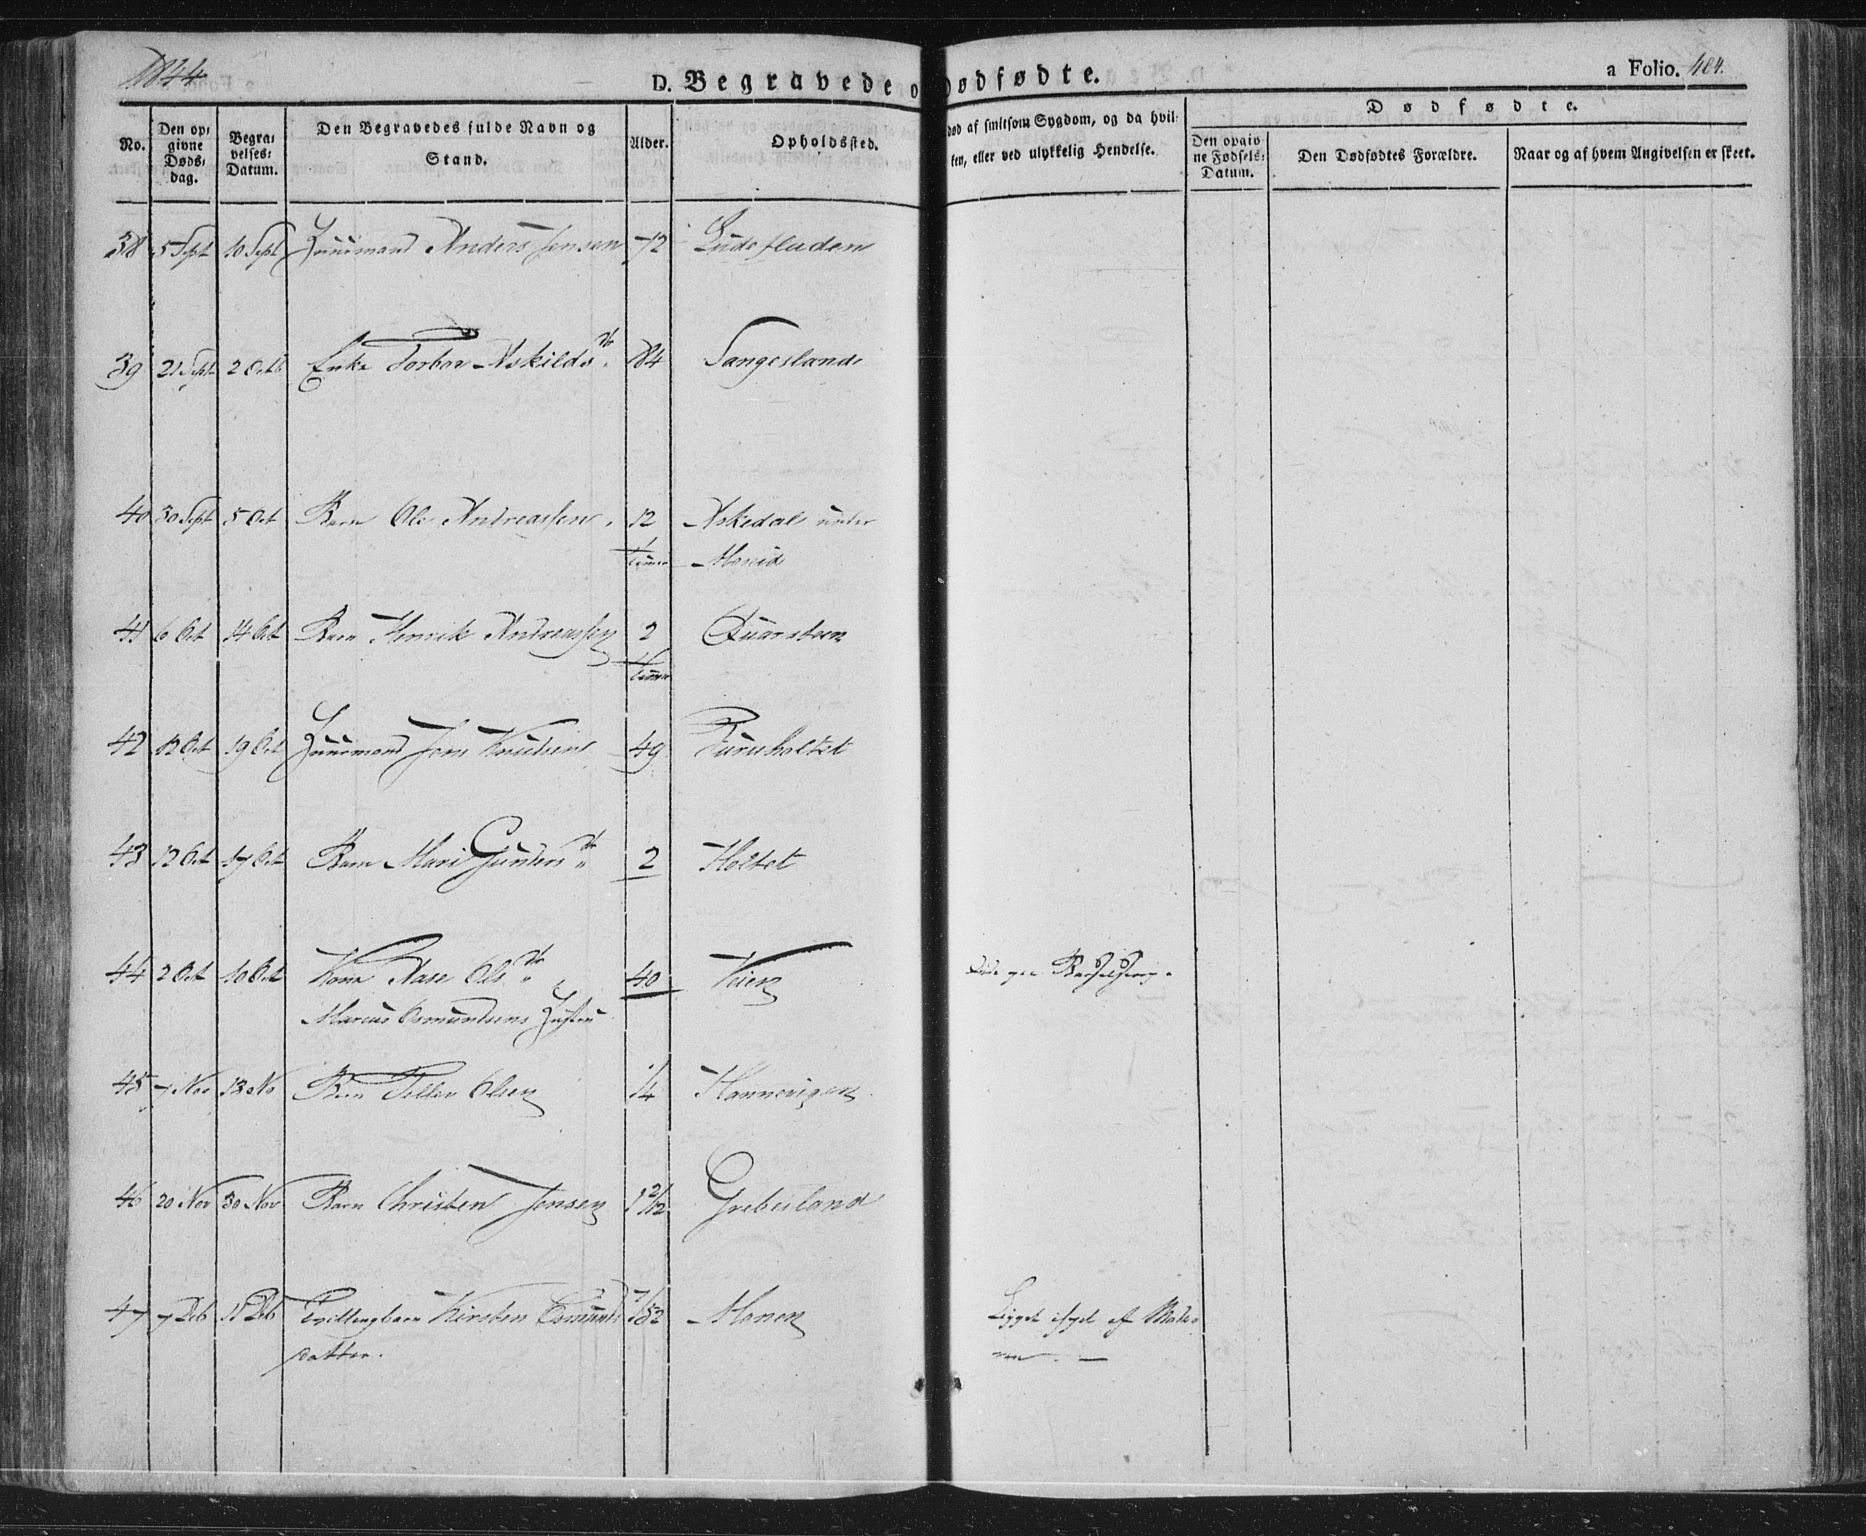 1844
D. Begravede o Dødfødte.
a Folio. 404.
No.
Den op-
givne
Døds-
dag.
Begra-
velses-
Datum.
Den Begravedes fulde Navn og
Stand.
Alder.
Opholdssted.
død af smitsom Sygdom, og da hvil-
ken, eller ved ulykkelig Hendelse.
Dødfødte.
Den opgiv-
ne Fødsels-
Datum.
Den Dødfødtes Forældre.
Naar og af hvem Angivelsen er skeet.
38 5 Sept 10 Sept Huusmand Anders Jensen 72
39 21 Sept 2 Octb Enke Torbor Askildsdtr 84 Sangesland
40 30 Sept 5 Oct Barn Ole Andreassen 12 Askedal under
Timer Monid
41 6 Oct 14 Oct Barn Henrik Andreassen 2 Quarsteen
Timer
42 12 Oct 19 Oct Huusmand Jens Knudsen 49 Furuholtet
43 12 Oct 17 Oct Barn Mari Gundersdtr 2 Holtet
44 2 Oct 10 Oct Kone Aase Olsdtr 40 Veien Barselseng
Marcus Osmundsens Hustru
45 7 Nov 13 No Barn Tellev Olsen 1/4 Hannevigen
46 20 Nov 30 Nov Barn Christen Jensen 1 2/12 Grebesland
47 7 Deb 11 Deb Tvillingbarn Kirsten Osmunds 1/52 Monen Ligget ihjel af Mode-
datter. ren